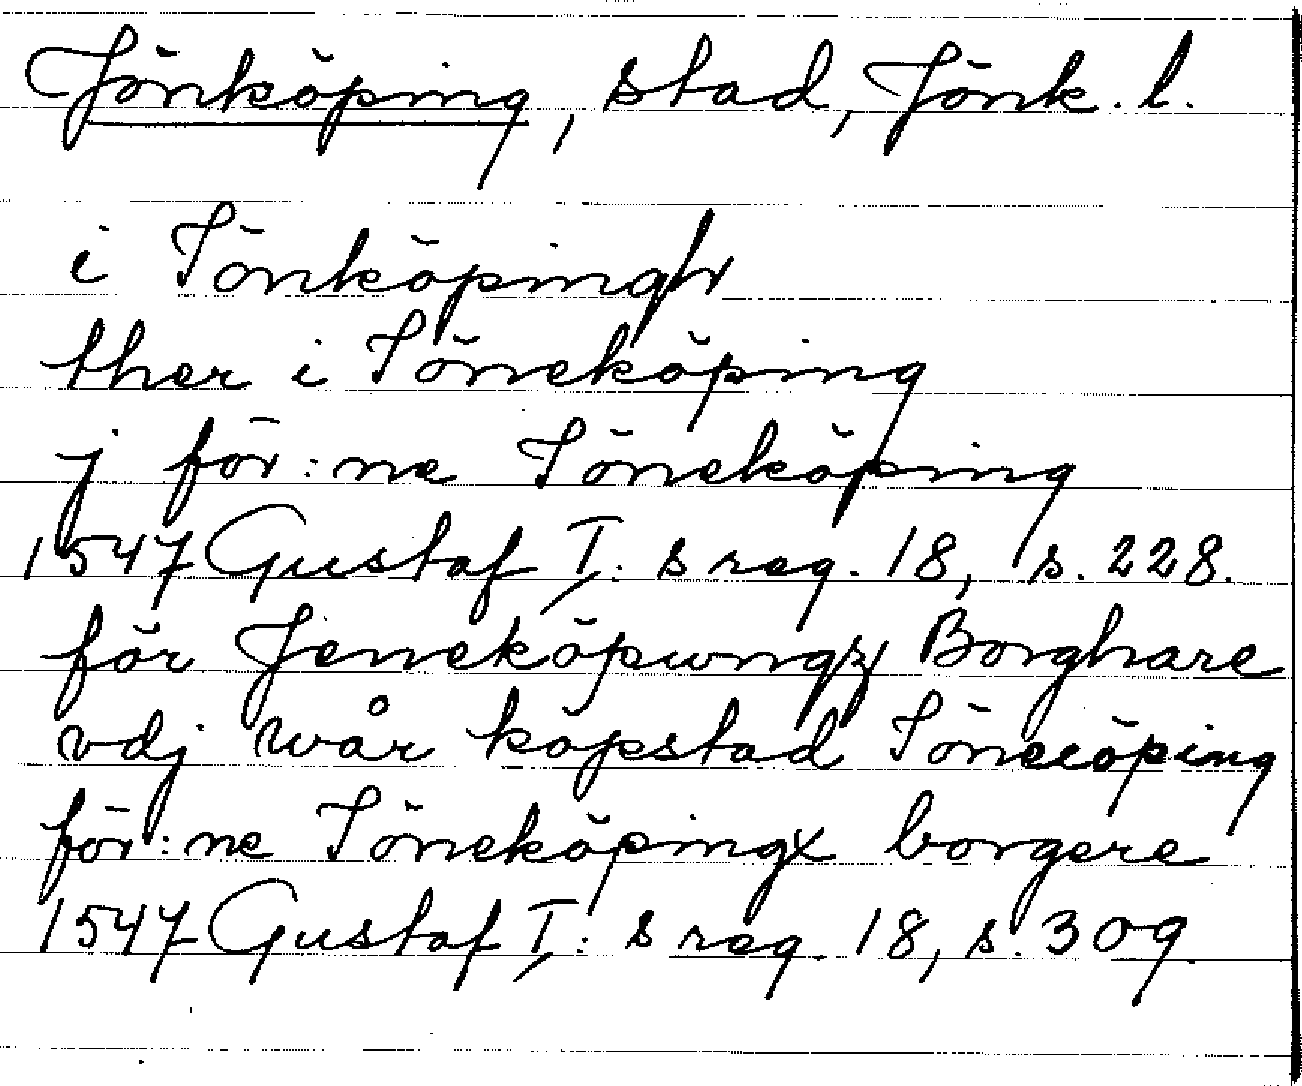 Jönköping, stad, Jönk. l.
i Jönköpingh
ther i Jöneköping
j för:ne Jöneköping
1547 Gustaf I:s reg. 18, s. 228.
för Jeneköpungz Borghare
vdj wår köpstad Jönecöping
för:ne Jöneköpingx borgere
1547 Gustaf I:s reg. 18, s. 309.